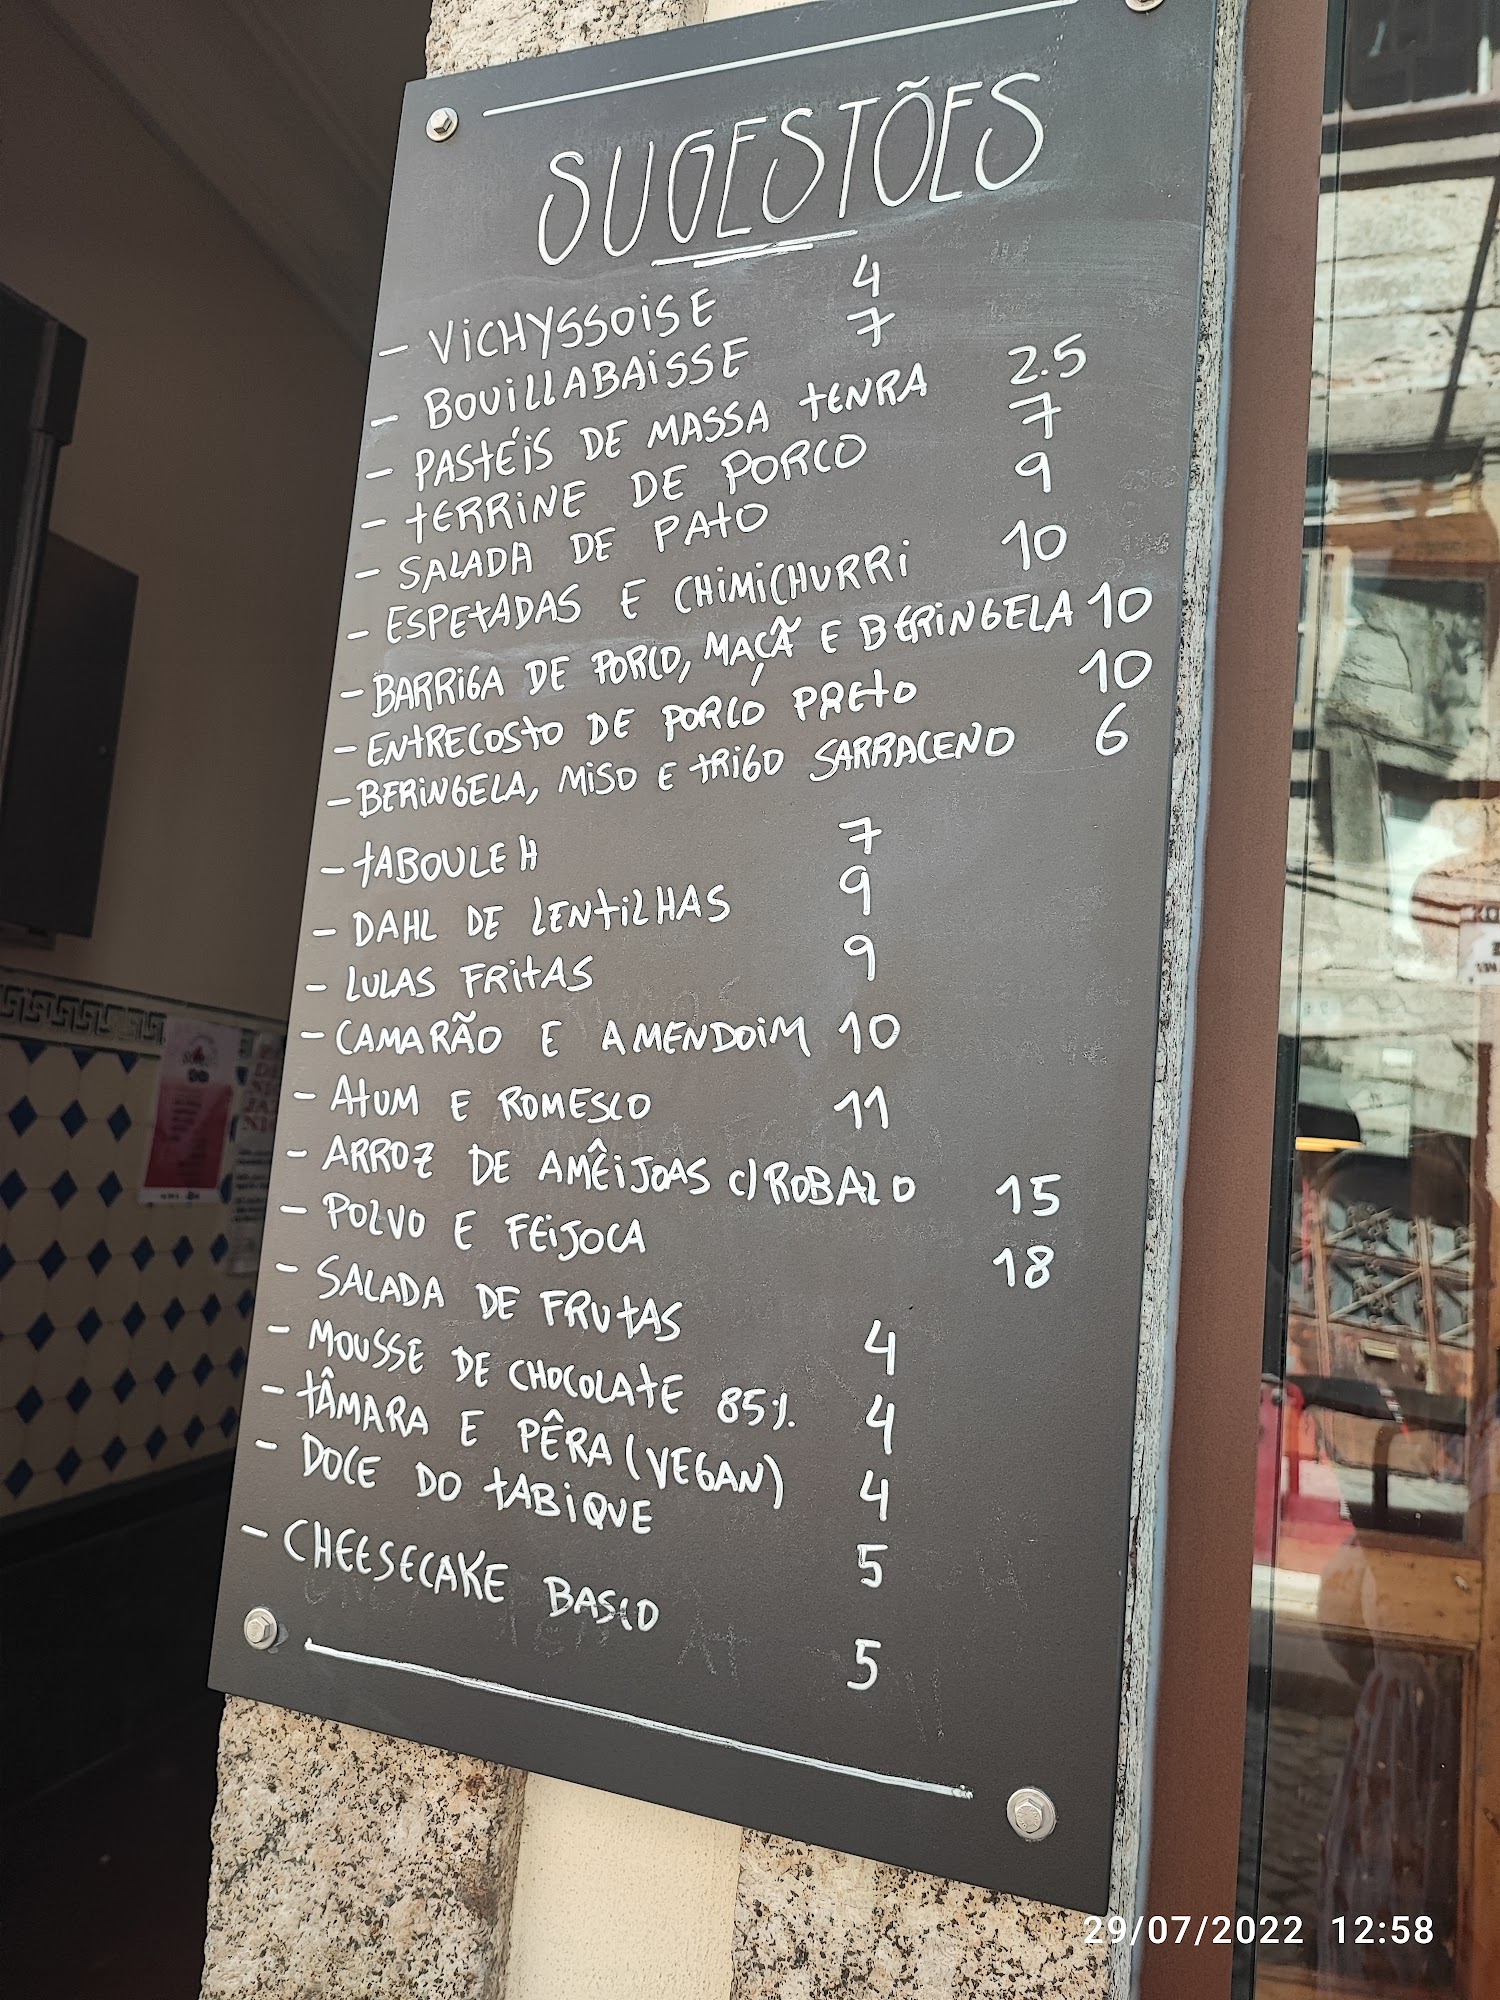 SUGESTÕES
- VICHYSSOISE 4
- BOUILLABAISSE 7
- PASTÉIS DE MASSA TENRA 2.5
- TERRINE DE PORCO 7
- SALADA DE PATO 9
- ESPETADAS E CHIMICHURRI 10
- BARRIGA DE PORCO, MAÇÃ E BERINGELA 10
- ENTRECOSTO DE PORCO PRETO 10
- BERINGELA, MISO E TRIGO SARRACENO 6
- TABOULEH 7
- DAHL DE LENTILHAS 9
- LULAS FRITAS 9
- CAMARÃO E AMENDOIM 10
- ATUM E ROMESCO 11
- ARROZ DE AMÊIJOAS C/ ROBALO 15
- POLVO E FEIJOCA 18
- SALADA DE FRUTAS 4
- MOUSSE DE CHOCOLATE 85% 4
- TÂMARA E PÊRA (VEGAN) 4
- DOCE DO TABIQUE 5
- CHEESECAKE BASCO 5
29/07/2022 12:58